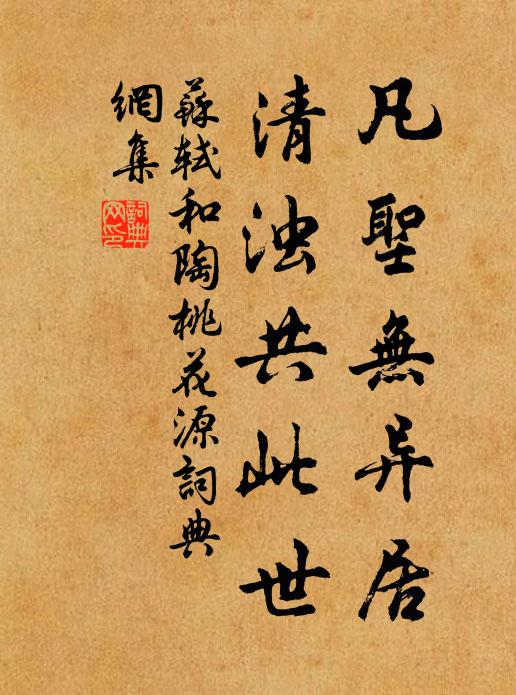 凡聖無异居
清浊共此世
蘇軾和陶桃花源詞典
網集
詞典
网印